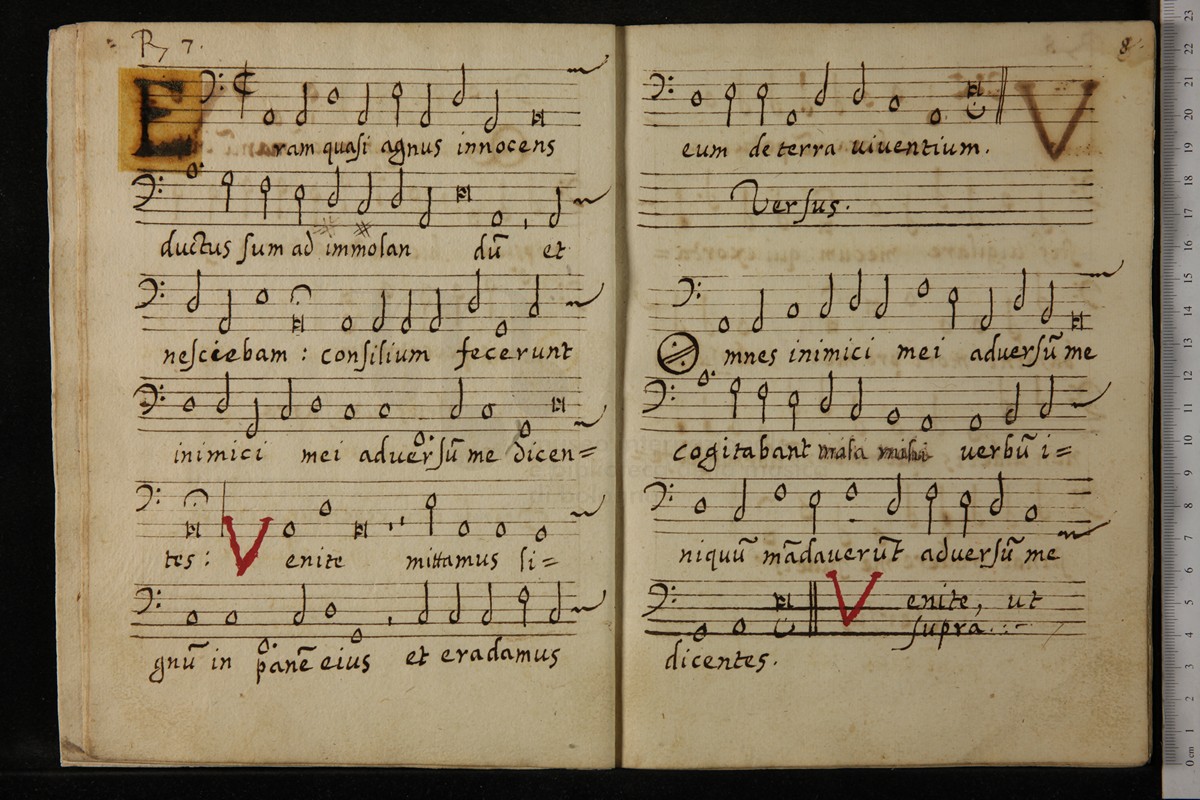 R 7.
Eram quasi agnus innocens
ductus sum ad immolan dū et
nesciebam : consilium fecerunt
inimici mei adversū me dicen=
tes : Venite mittamus li=
gnū in panē eius et eradamus
8
eum de terra uiventium. V
Versus.
Omnes inimici mei adversū me
cogitabant mala mihi uerbū i=
niquū mādaverūt adversū me
dicentes. Venite, ut
supra.